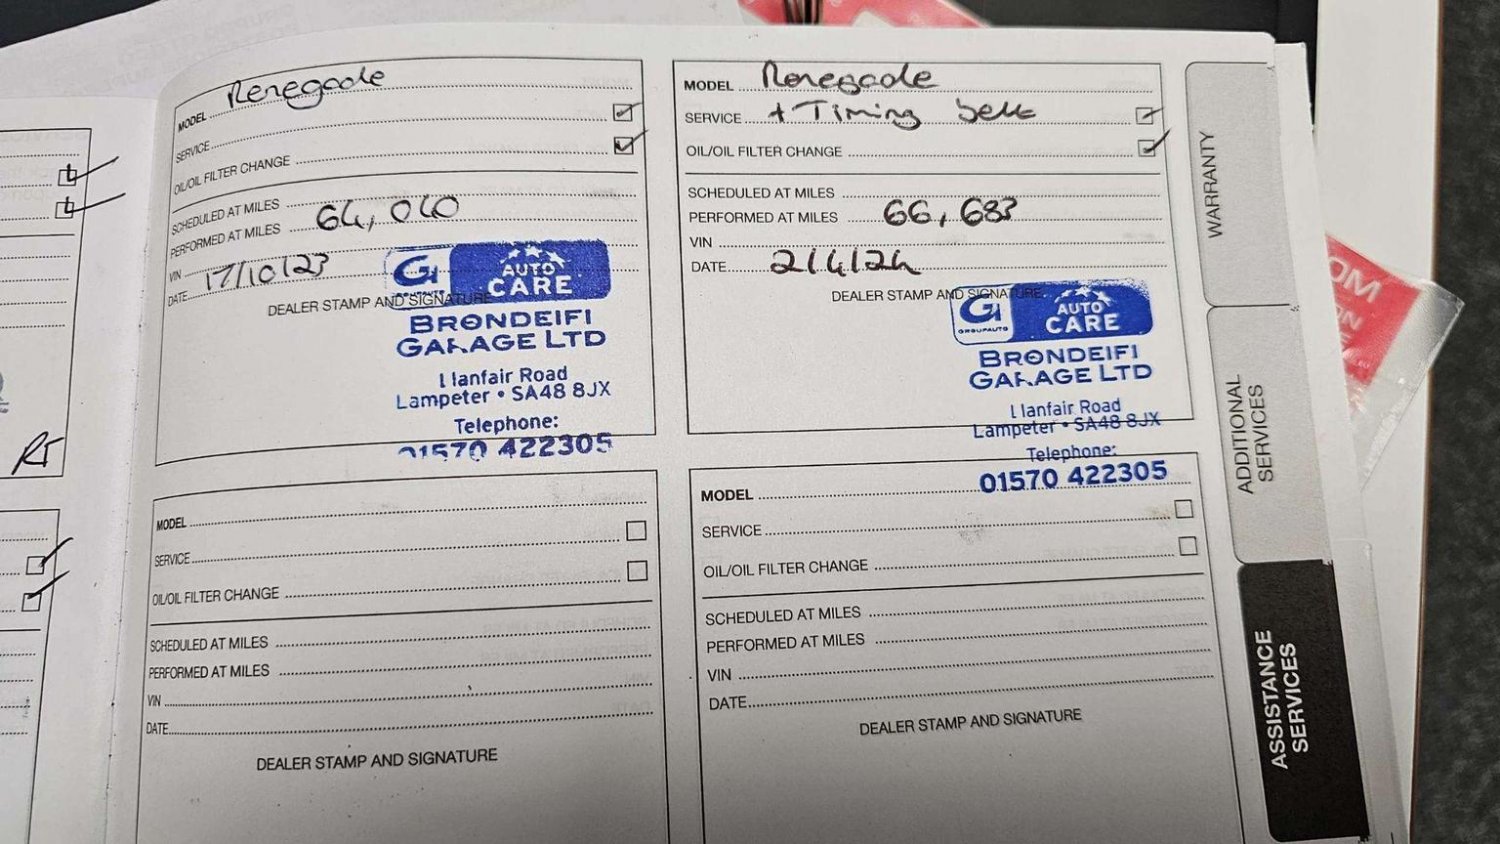 MODEL Renegade
SERVICE
OIL/OIL FILTER CHANGE
SCHEDULED AT MILES
PERFORMED AT MILES 64,040
VIN
DATE 17/10/23
DEALER STAMP AND SIGNATURE
G1 AUTO
CARE
BRONDEIFI
GARAGE LTD
Llanfair Road
Lampeter • SA48 8JX
Telephone:
01570 422305
MODEL Renegade
SERVICE + Timing belt
OIL/OIL FILTER CHANGE
SCHEDULED AT MILES
PERFORMED AT MILES 66,683
VIN
DATE 2/4/24
DEALER STAMP AND SIGNATURE
G1 AUTO
GROUPAUTO CARE
BRONDEIFI
GARAGE LTD
Llanfair Road
Lampeter • SA48 8JX
Telephone:
01570 422305
MODEL
SERVICE
OIL/OIL FILTER CHANGE
SCHEDULED AT MILES
PERFORMED AT MILES
VIN
DATE
DEALER STAMP AND SIGNATURE
MODEL
SERVICE
OIL/OIL FILTER CHANGE
SCHEDULED AT MILES
PERFORMED AT MILES
VIN
DATE
DEALER STAMP AND SIGNATURE
WARRANTY
ADDITIONAL
SERVICES
ASSISTANCE
SERVICES